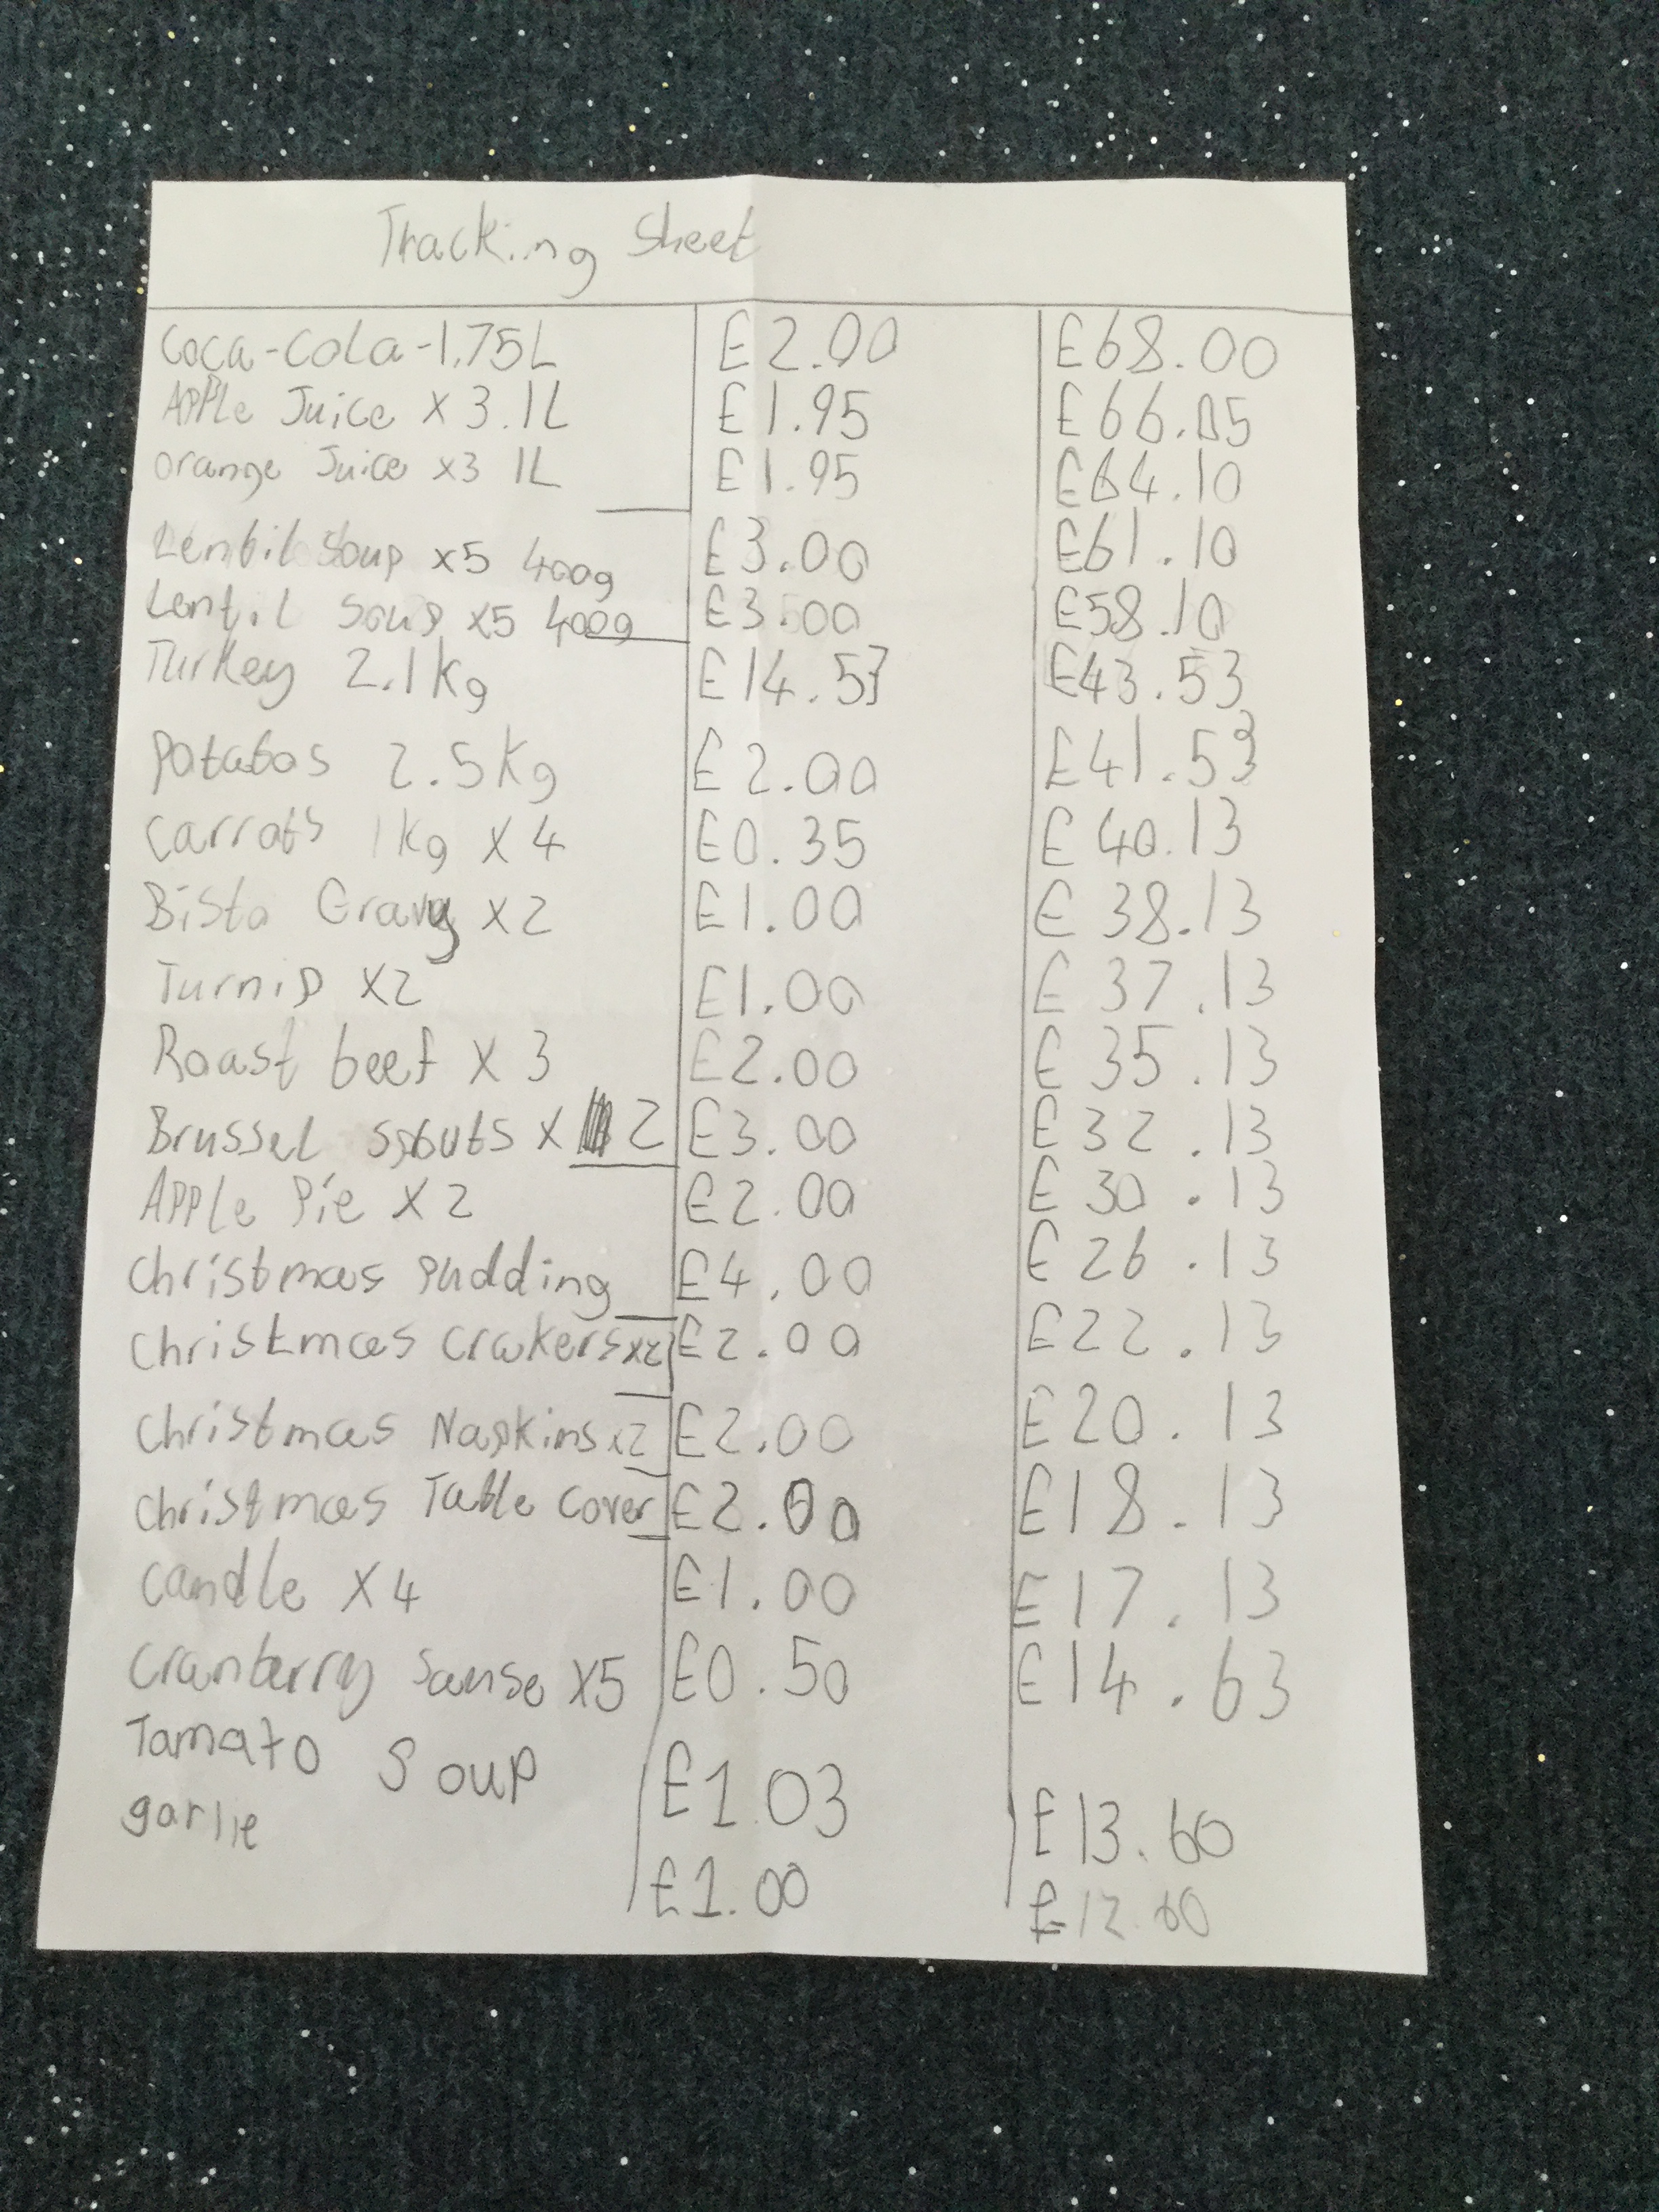 Tracking Sheet
Coca-Cola-1.75L £2.00 £68.00
Apple Juice x 3.1L £1.95 £66.05
Orange Juice x3 1L £1.95 £64.10
Lentil Soup x5 400g £3.00 £61.10
Lentil Soup x5 400g £3.00 £58.10
Turkey 2.1kg £14.53 £43.53
Potatos 2.5kg £2.00 £41.53
Carrots 1kg x 4 £0.35 £40.13
Bisto Gravy x2 £1.00 £38.13
Turnip x2 £1.00 £37.13
Roast beef x 3 £2.00 £35.13
Brussel sprouts x 2 £3.00 £32.13
Apple Pie x 2 £2.00 £30.13
Christmas Pudding £4.00 £26.13
Christmas Crakers x2 £2.00 £22.13
Christmas Napkins x2 £2.00 £20.13
Christmas Table Cover £2.00 £18.13
Candle x 4 £1.00 £17.13
Cranberry Sause x5 £0.50 £14.63
Tamato Soup £1.03 £13.60
garlic £1.00 £12.60